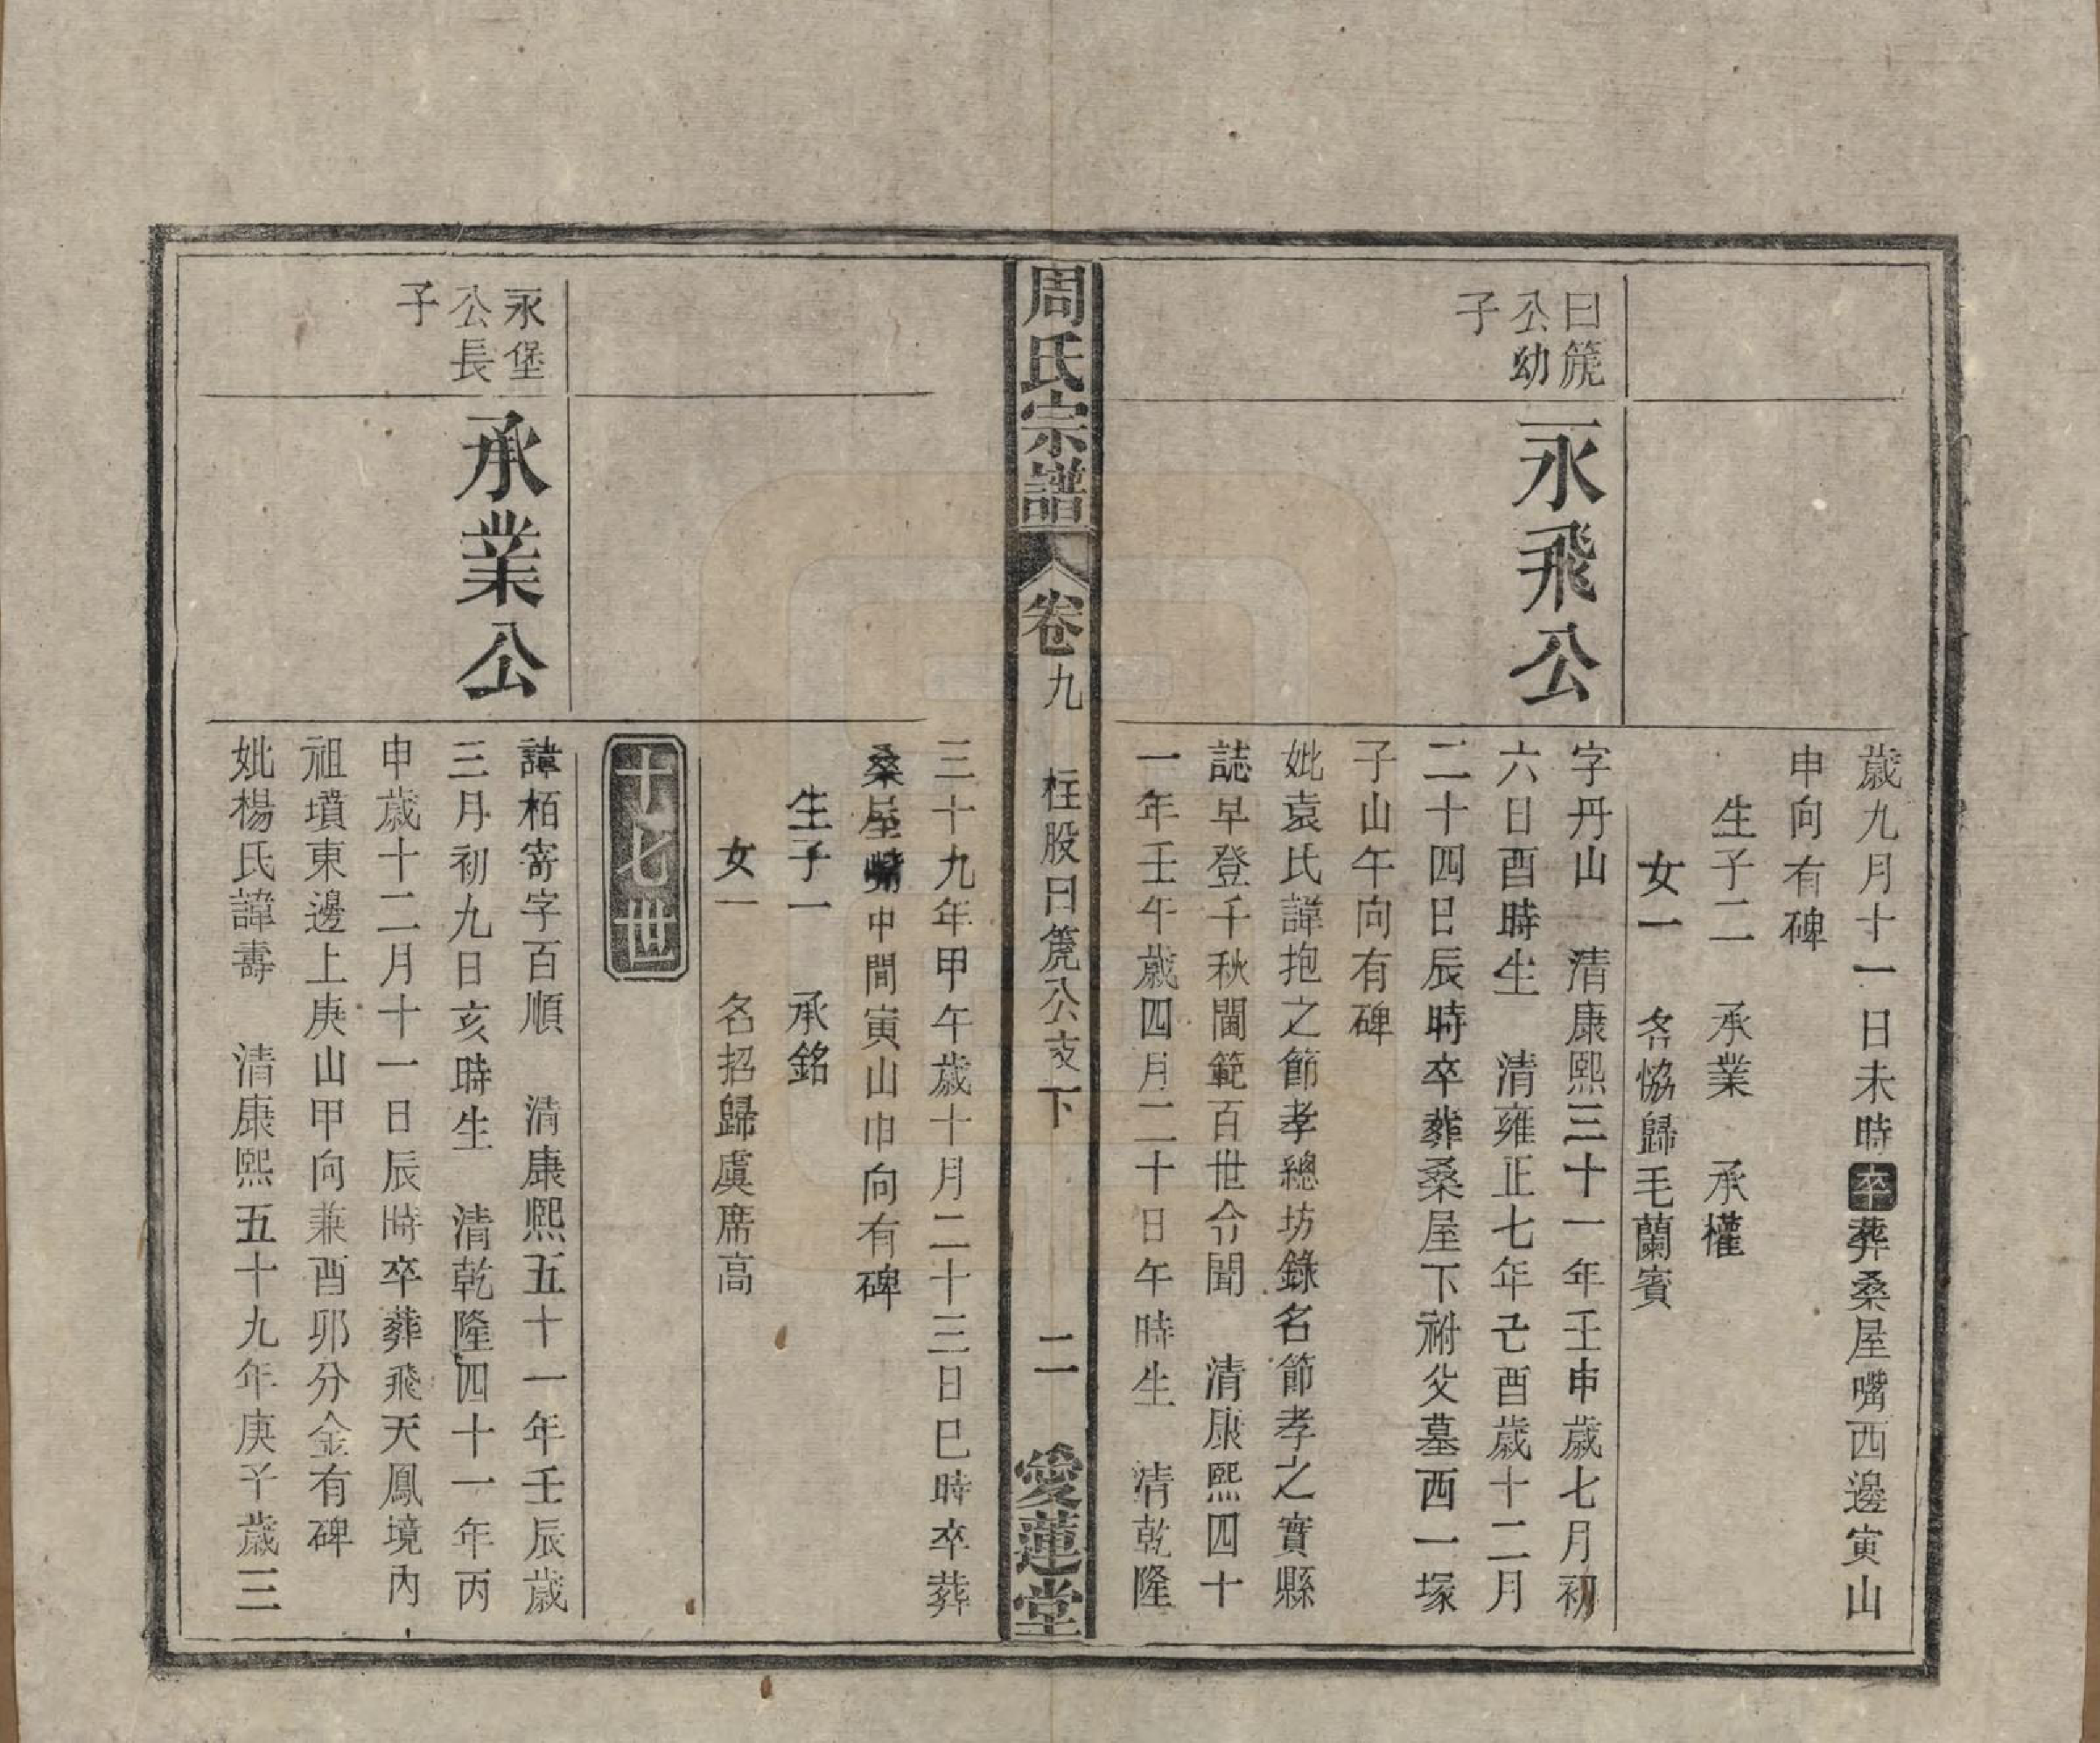 歲九月十一日未時卒葬桑屋嘴西邊寅山
申向有碑
生子二　承業　承權
女一　名恊歸毛蘭賓
曰箎
公幼
子
永飛公
字丹山　清康熙三十一年壬申歲七月初
六日酉時生　清雍正七年己酉歲十二月
二十四日辰時卒葬桑屋下祔父墓西一塚
子山午向有碑
妣袁氏諱抱之節孝總坊錄名節孝之實縣
誌早登千秋閫範百世令聞　清康熙四十
一年壬午歲四月二十日午時生　清乾隆
周氏宗譜　卷九　柱股曰箎公支下　二　愛蓮堂
三十九年甲午歲十月二十三日巳時卒葬
桑屋嘴中間寅山申向有碑
生子一　承銘
女一　名招歸虞席高
十七世
永堡
公長
子
承業公
諱栢寄字百順　清康熙五十一年壬辰歲
三月初九日亥時生　清乾隆四十一年丙
申歲十二月十一日辰時卒葬飛天鳳境內
祖墳東邊上庚山甲向兼酉卯分金有碑
妣楊氏諱壽　清康熙五十九年庚子歲三